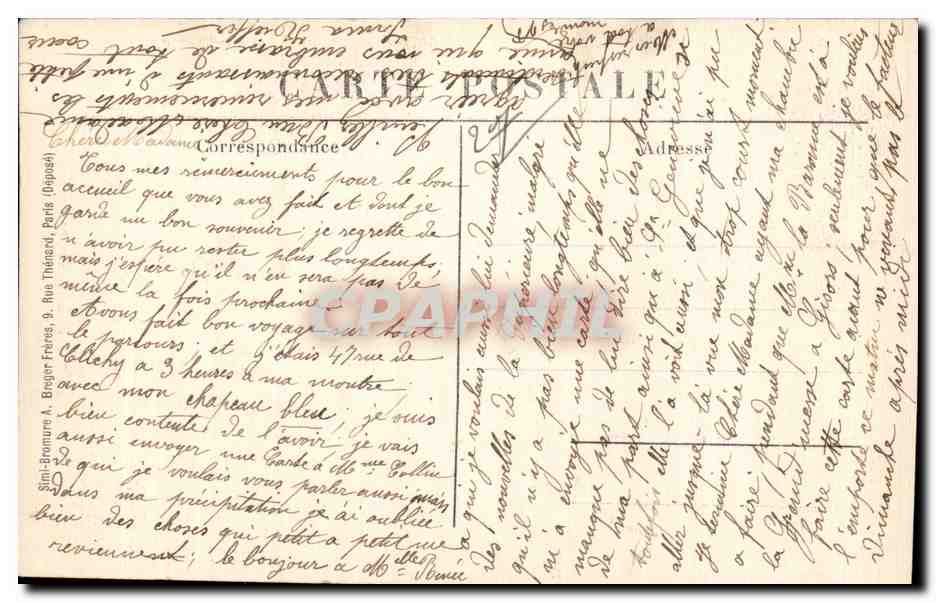 CARTE POSTALE
Correspondance
Adresse
Simi-Bromure A. Breger Frères, 9. Rue Thénard, Paris (Déposé)
CPAPHIL
Chère Madame
Tous mes remerciements pour le bon
accueil que vous avez fait et dont je
garde un bon souvenir; je regrette de
n'avoir pu rester plus longtemps,
mais j'espère qu'il n'en sera pas de
même la fois prochaine.
Avons fait bon voyage sur tout
le parcours; et j'étais 47 rue de
Clichy à 3 heures à ma montre
avec mon chapeau bleu; je suis
bien contente de l'avoir; je vais
aussi envoyer une Carte à Mme Collin
de qui je voulais vous parler aussi mais
dans ma précipitation je ai oubliée
bien des choses qui petit a petit me
reviennent; le bonjour a Melle
a qui je voulais aussi lui demander
des nouvelles de la
qu'il n'y a pas bien longtemps qu'elle
m'a envoyé une carte, qu'elle ne
manque pas de lui dire bien des choses
de ma part ainsi qu'à Ste Geneviève si
toutefois elle l'a voit aussi et que je n'ai pu
aller jusque là vue mon trop court moment
Je termine Chère Madame ayant ma chambre
a faire pendant que Mme la Baronne est à
la Grand'messe à Gisors seulement je voulais
faire cette carte avant pour que le facteur
l'emporte ce matin ne venant pas le
Dimanche après midi
Veuillez donc Chère Madame
agréer avec mes remerciements les
reconnaissants d'une petite
amie qui vous embrasse de tout
coeur